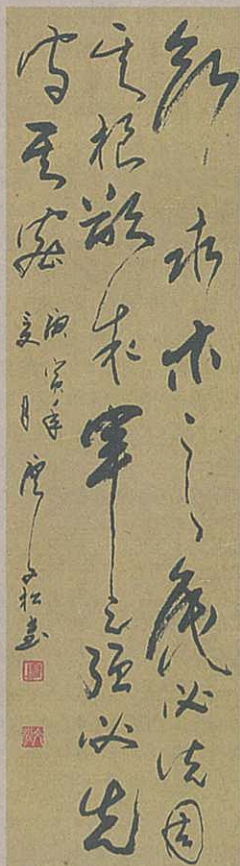 欲求木之茂必先固
其根欲求军之强必先
守其密
庚寅年
夏月唐松書